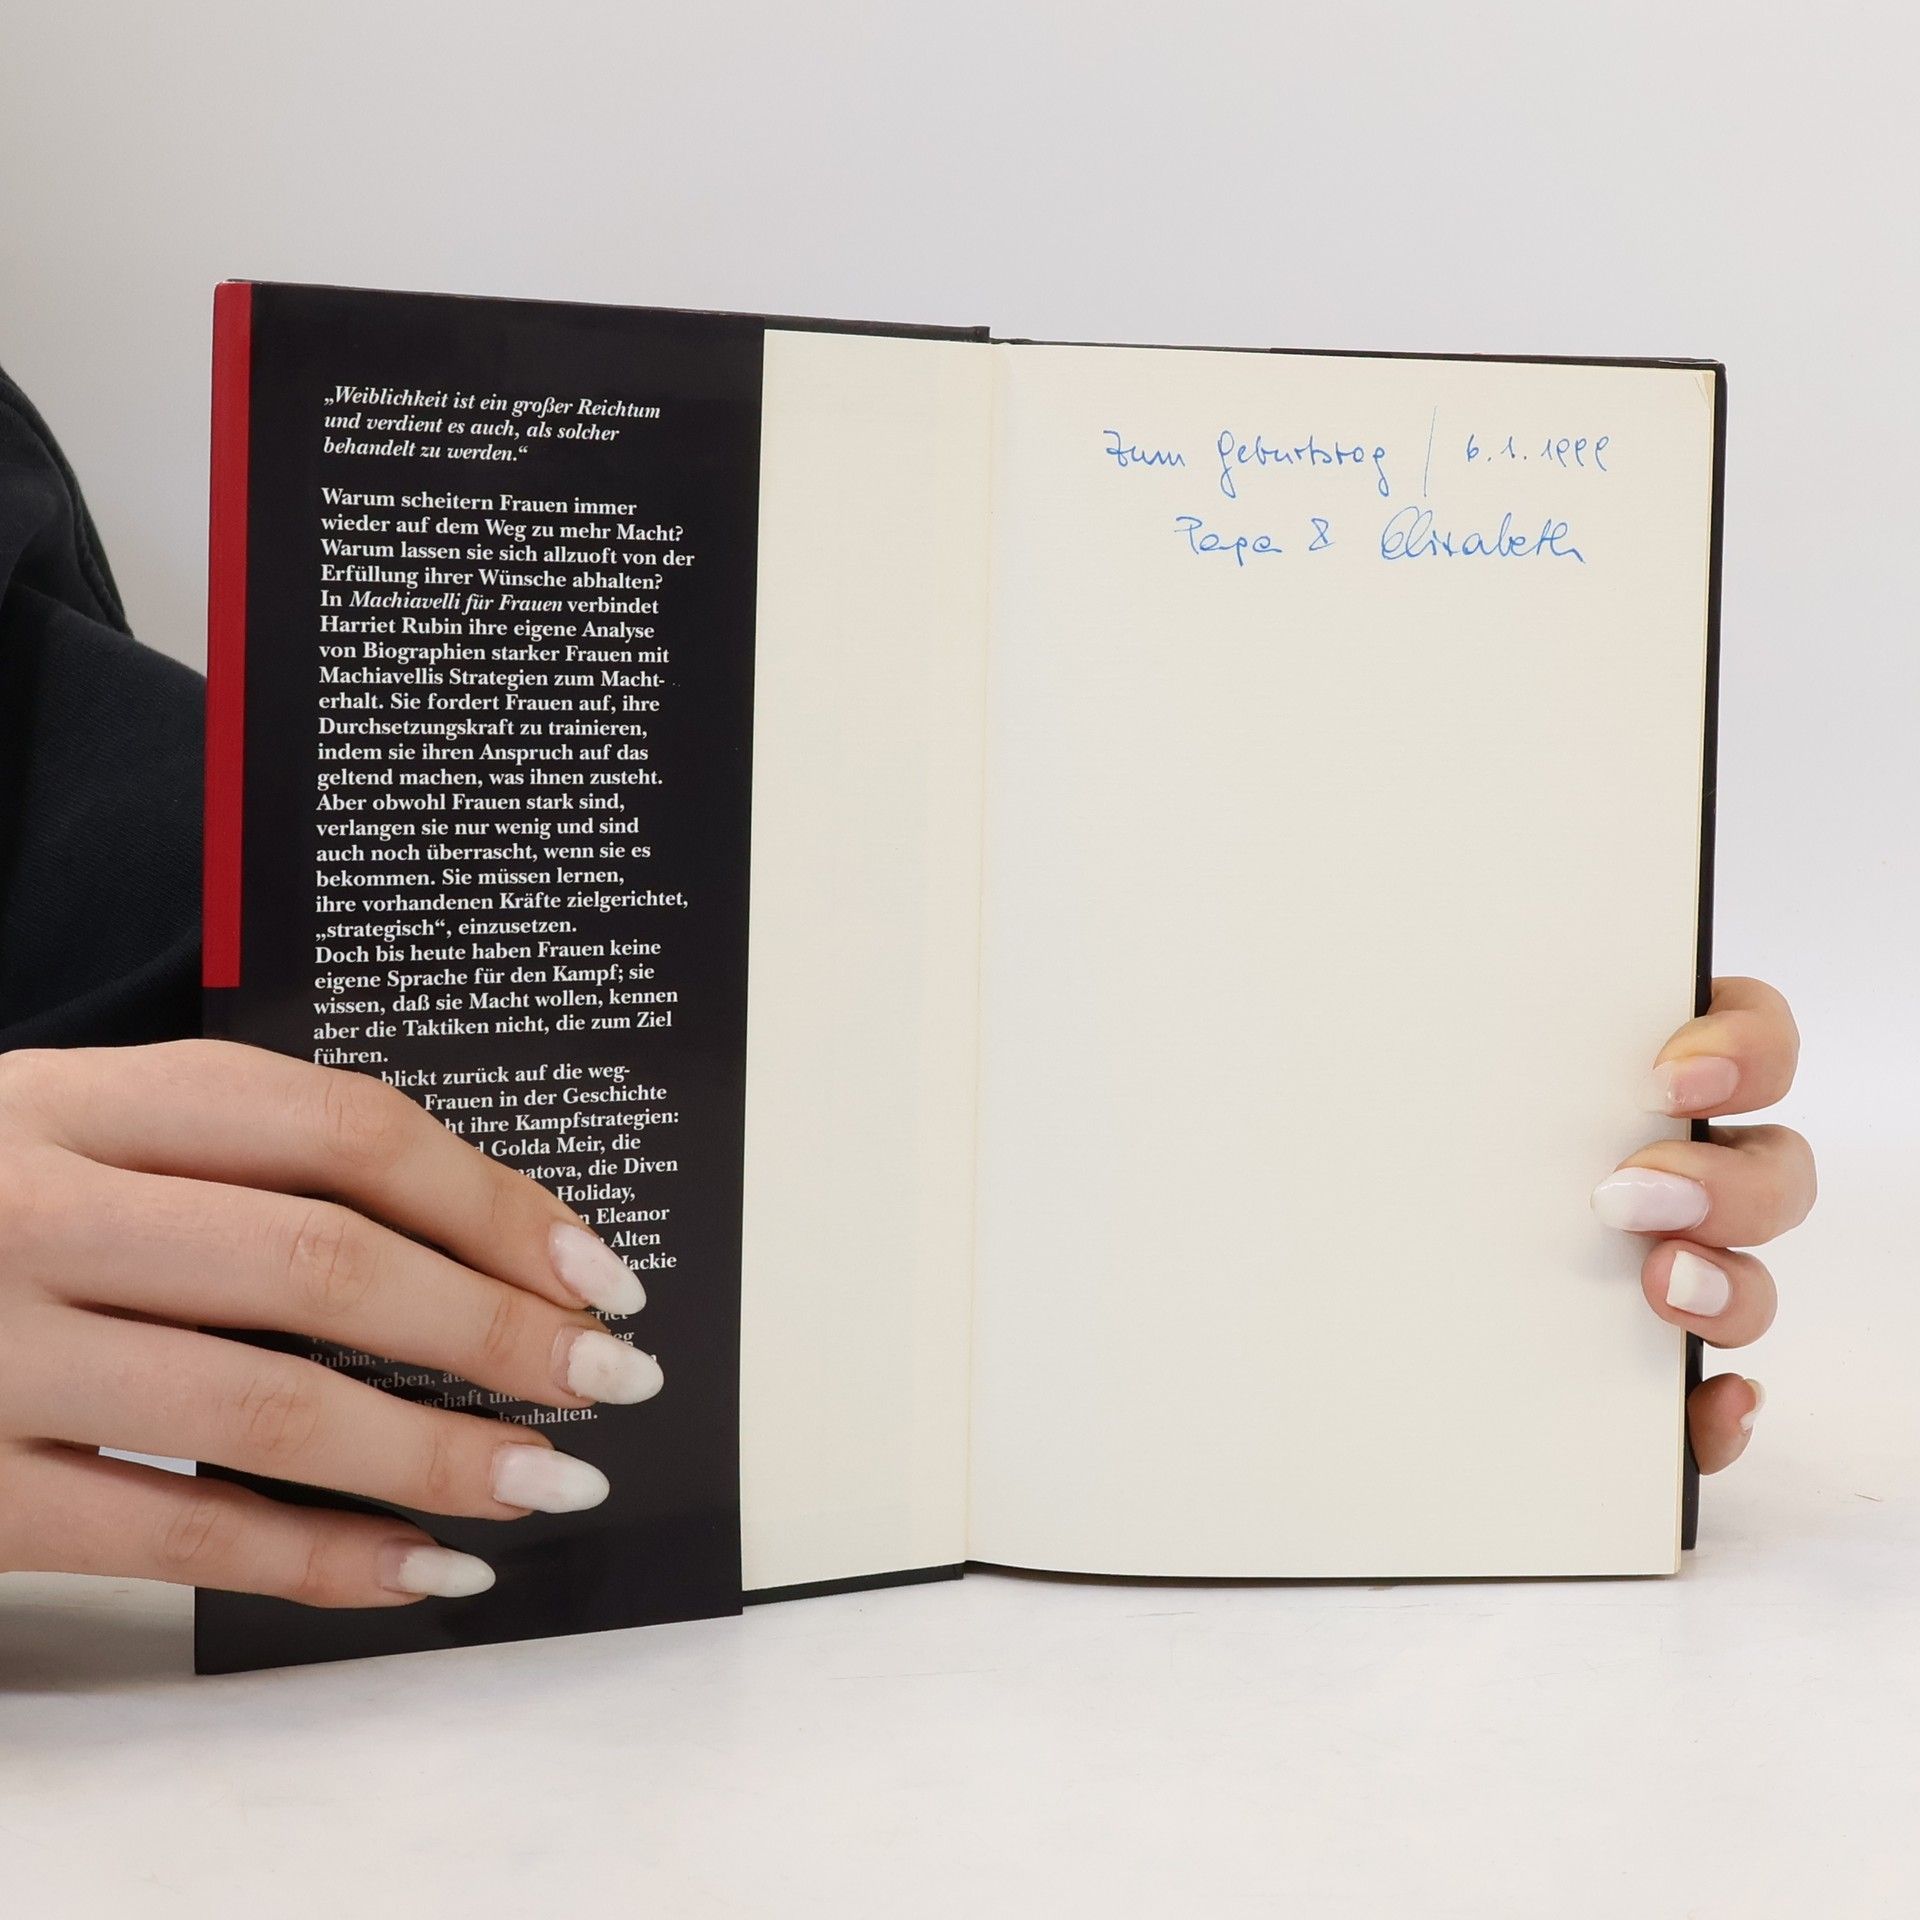 „Weiblichkeit ist ein großer Reichtum
und verdient es auch, als solcher
behandelt zu werden.“
Warum scheitern Frauen immer
wieder auf dem Weg zu mehr Macht?
Warum lassen sie sich allzuoft von der
Erfüllung ihrer Wünsche abhalten?
In Machiavelli für Frauen verbindet
Harriet Rubin ihre eigene Analyse
von Biographien starker Frauen mit
Machiavellis Strategien zum Macht-
erhalt. Sie fordert Frauen auf, ihre
Durchsetzungskraft zu trainieren,
indem sie ihren Anspruch auf das
geltend machen, was ihnen zusteht.
Aber obwohl Frauen stark sind,
verlangen sie nur wenig und sind
auch noch überrascht, wenn sie es
bekommen. Sie müssen lernen,
ihre vorhandenen Kräfte zielgerichtet,
„strategisch“, einzusetzen.
Doch bis heute haben Frauen keine
eigene Sprache für den Kampf; sie
wissen, daß sie Macht wollen, kennen
aber die Taktiken nicht, die zum Ziel
führen.
blickt zurück auf die weg-
Frauen in der Geschichte
ihre Kampfstrategien:
Golda Meir, die
die Diven
Holiday,
Eleanor
Alten
Jackie
Rubin,
Zum Geburtstag / 6.1.1999
Papa & Elisabeth